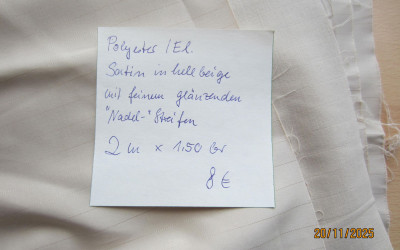 Polyester / El.
Satin in hell beige
mit feinem glänzenden
"Nadel-" Streifen
2 m x 1.50 br
8 €
20/11/2025